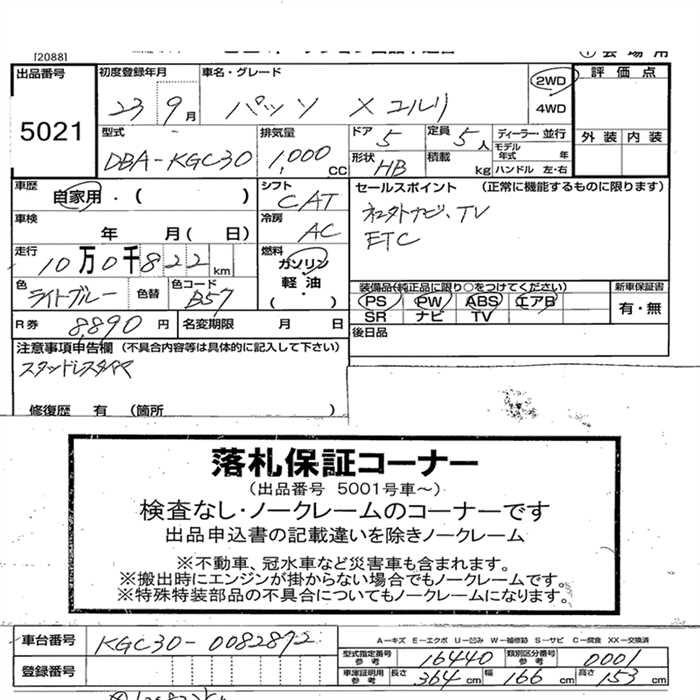 [2088]
出品番号
5021
初度登録年月
23 9月
車名・グレード
パッソ Xユルリ
2WD
4WD
評価点
外装 内装
型式
DBA-KGC30
排気量
1,000CC
ドア 5
定員 5人
形状 HB
積載 kg
ディーラー・並行
モデル年式 年
ハンドル 左・右
車歴
自家用・( )
シフト
CAT
車検
年 月( 日)
冷房
AC
走行
10万0千822km
燃料
ガソリン
軽油
・( )
色
ライトブルー
色替
色コード
B57
R券 8,890円
名変期限 月 日
セールスポイント (正常に機能するものに限ります)
ETC
装備品(純正品に限り○をつけてください)
PS PW ABS エアB
SR ナビ TV
新車保証書
有・無
後日品
注意事項申告欄 (不具合内容等は具体的に記入して下さい)
スタッドレスタイヤ
修復歴 有 (箇所 )
落札保証コーナー
(出品番号 5001号車～)
検査なし・ノークレームのコーナーです
出品申込書の記載違いを除きノークレーム
※不動車、冠水車など災害車も含まれます。
※搬出時にエンジンが掛からない場合でもノークレームです。
※特殊特装部品の不具合についてもノークレームになります。
車台番号
KGC30-0082872
登録番号
A－キズ E－エクボ U－凹み W－補修跡 S－サビ C－腐食 XX－交換済
型式指定番号参考 16440
類別区分番号参考 0001
車庫証明用参考 長さ 364cm 幅 166cm 高さ 153cm